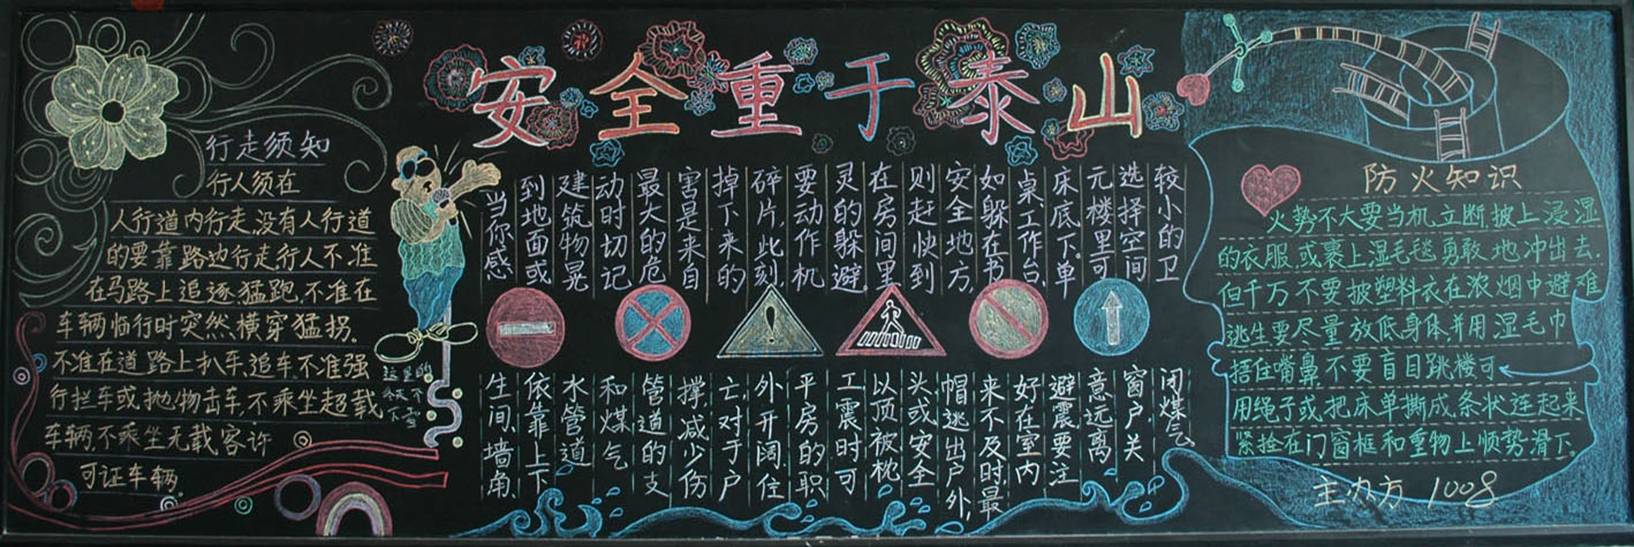 安全重于泰山
行走须知
行人须在
人行道内行走,没有人行道
的要靠路边行走,行人不准
在马路上追逐.猛跑.不准在
车辆临行时突然.横穿猛拐.
不准在道路上扒车.追车不准强
行拦车或抛物击车,不乘坐超载
车辆,不乘坐无载客许
可证车辆.
这里的
今天不
当你感
到地面或
建筑物晃
动时切记
最大的危
害是来自
掉下来的
碎片,此刻
要动作机
灵的躲避.
在房间里
则赶快到
安全地方,
如躲在书
桌.工作台.
床底下.单
元楼里可
选择空间
较小的卫
生间、墙角.
依靠上下
水管道
和煤气
管道的支
撑,减少伤
亡,对于户
外开阔住
平房的职
工震时可
以顶被枕
头或安全
帽逃出户外,
来不及时最
好在室内
避震要注
意远离
窗户关
闭煤气.
防火知识
火势不大要当机立断披上浸湿
的衣服.或裹上湿毛毯勇敢地冲出去.
但千万不要披塑料衣在浓烟中避难
逃生要尽量放低身体,并用湿毛巾
捂住嘴鼻.不要盲目跳楼可
用绳子或把床单撕成条状连起来
紧拴在门窗框和重物上顺势滑下.
主办方 1008